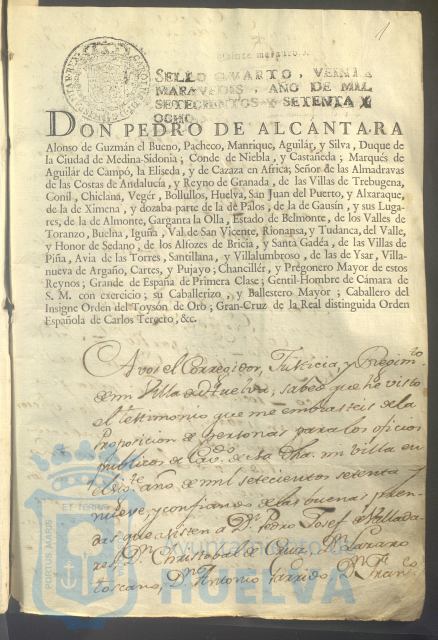 1
SELLO QUARTO, VEINTE
MARAVEDIS, AÑO DE MIL
SETECIENTOS Y SETENTA Y
OCHO
DON PEDRO DE ALCÁNTARA
Alonso de Guzmán el Bueno, Pacheco, Manrique, Aguilár, y Silva, Duque de
la Ciudad de Medina-Sidonia; Conde de Niebla, y Castañeda; Marqués de
Aguilár de Campó, la Eliseda, y de Cazaza en Africa; Señor de las Almadravas
de las Costas de Andalucía, y Reyno de Granada, de las Villas de Trebugena,
Conil, Chiclana, Vegér, Bollullos, Huelva, San Juan del Puerto, y Alxaraque,
de la de Ximena, y dozaba parte de la de Palos, de la de Gausín, y sus Luga-
res, de la de Almonte, Garganta la Olla, Estado de Belmonte, de los Valles de
Toranzo, Buelna, Iguña, Val de San Vicente, Rionansa, y Tudanca, del Valle,
y Honor de Sedano, de los Alfozes de Bricia, y Santa Gadéa, de las Villas de
Piña, Avia de las Torres, Santillana, y Villalumbroso, de las de Ysar, Villa-
nueva de Argaño, Cartes, y Pujayo; Chancillér, y Pregonero Mayor de estos
Reynos; Grande de España de Primera Clase; Gentil-Hombre de Cámara de
S. M. con exercicio; su Caballerizo, y Ballestero Mayor; Caballero del
Insigne Orden del Toysón de Oro; Gran-Cruz de la Real distinguida Orden
Española de Carlos Tercero, &c.
A vos el Corregidor, Justicia, y Regim.to
de mi Villa de Huelva, sabed que he visto
el testimonio que me embiasteis de la
Proposicion de personas para los oficios
publicos de Con.o de esta dha. mi Villa en
el año de mil setecientos setenta y
nueve, y confiando de las buenas pren-
das que asisten a Dn. Pedro Josef de Vallada
res, Dn. Christobal de Cruz, Dn. Lazaro
toscano, Dn. Antonio Garrido, Dn. Fran.co
Ayuntamiento de
HUELVA
PORTUS MARIS
ET TERRAE